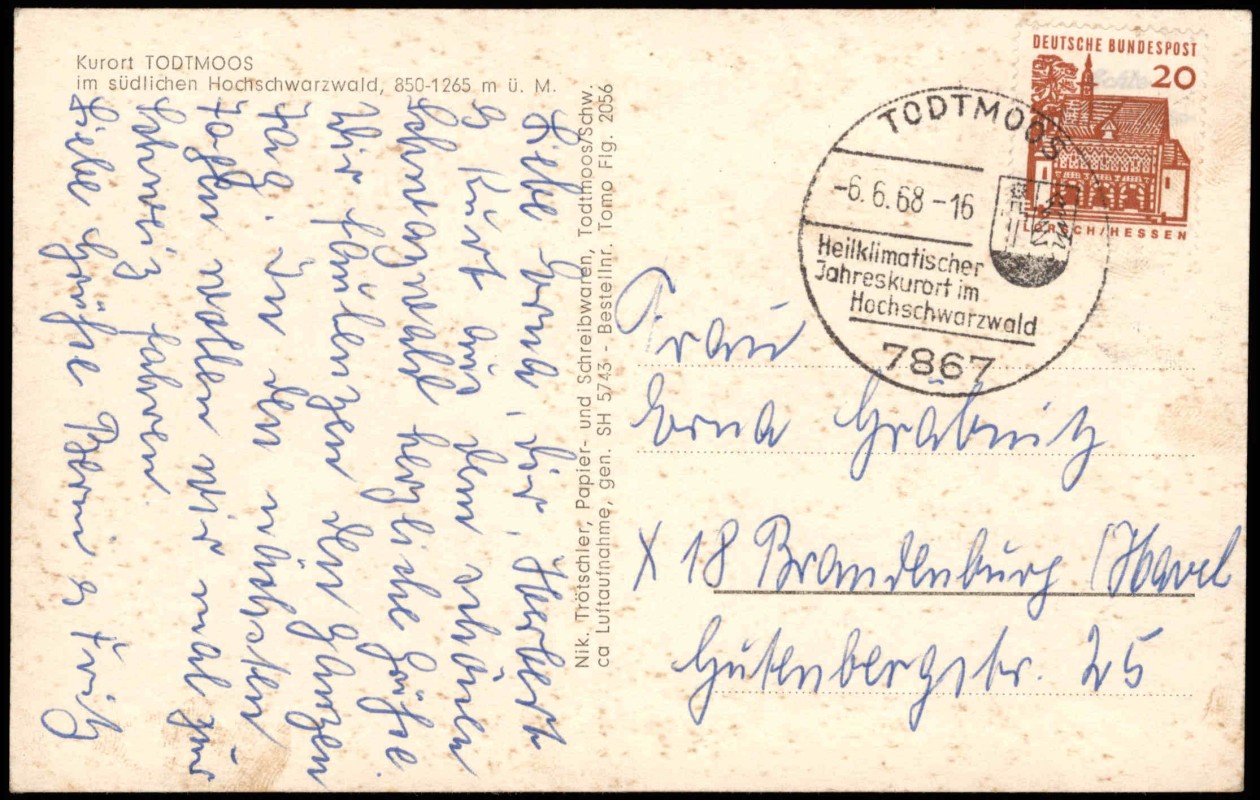 Kurort TODTMOOS
im südlichen Hochschwarzwald, 850-1265 m ü. M.
Liebe Erna, Dir, Herbert
& Kurt aus dem schönen
Schwarzwald herzliche Grüße.
Wir faulenzen den ganzen
Tag. In den nächsten
Tagen wollen wir mal zur
Schweiz fahren.
Liebe Grüße & Fritz
Nik. Trötschler, Papier- und Schreibwaren, Todtmoos/Schw.
ca Luftaufnahme, gen. SH 5743 - Bestellnr. Tomo Flg. 2056
DEUTSCHE BUNDESPOST
20
LORSCH/HESSEN
TODTMOOS
-6.6.68-16
Heilklimatischer
Jahreskurort im
Hochschwarzwald
7867
Frau
Erna Grabnitz
X 18 Brandenburg (Havel
Gutenbergstr. 25